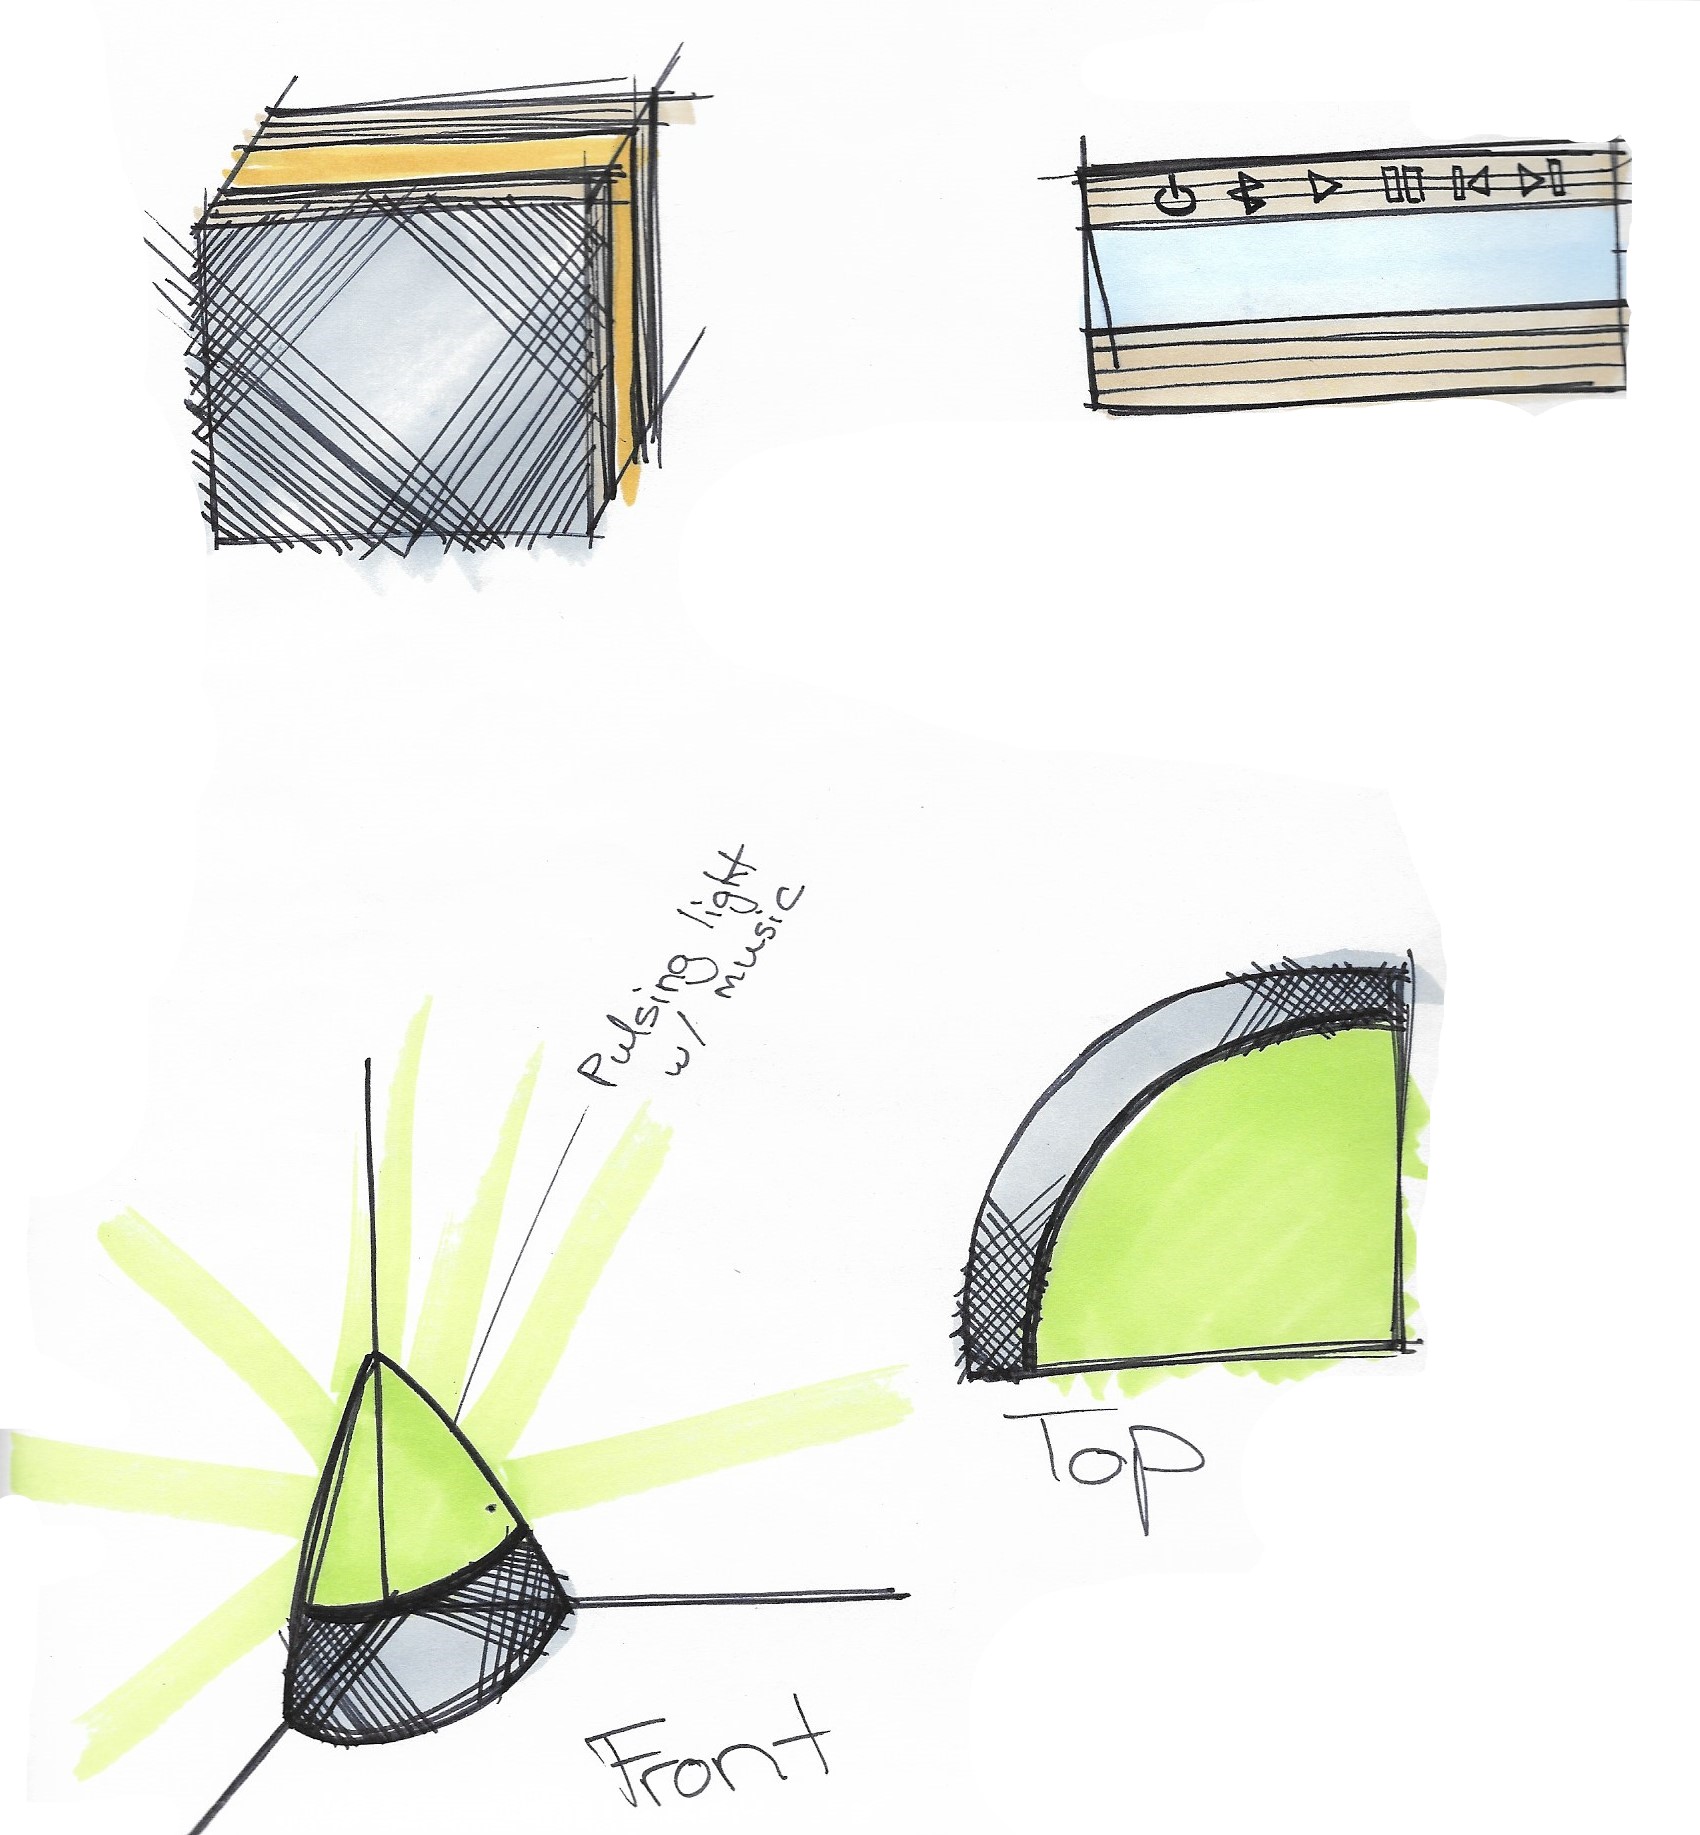 Pulsing light
w/ music
Top
Front